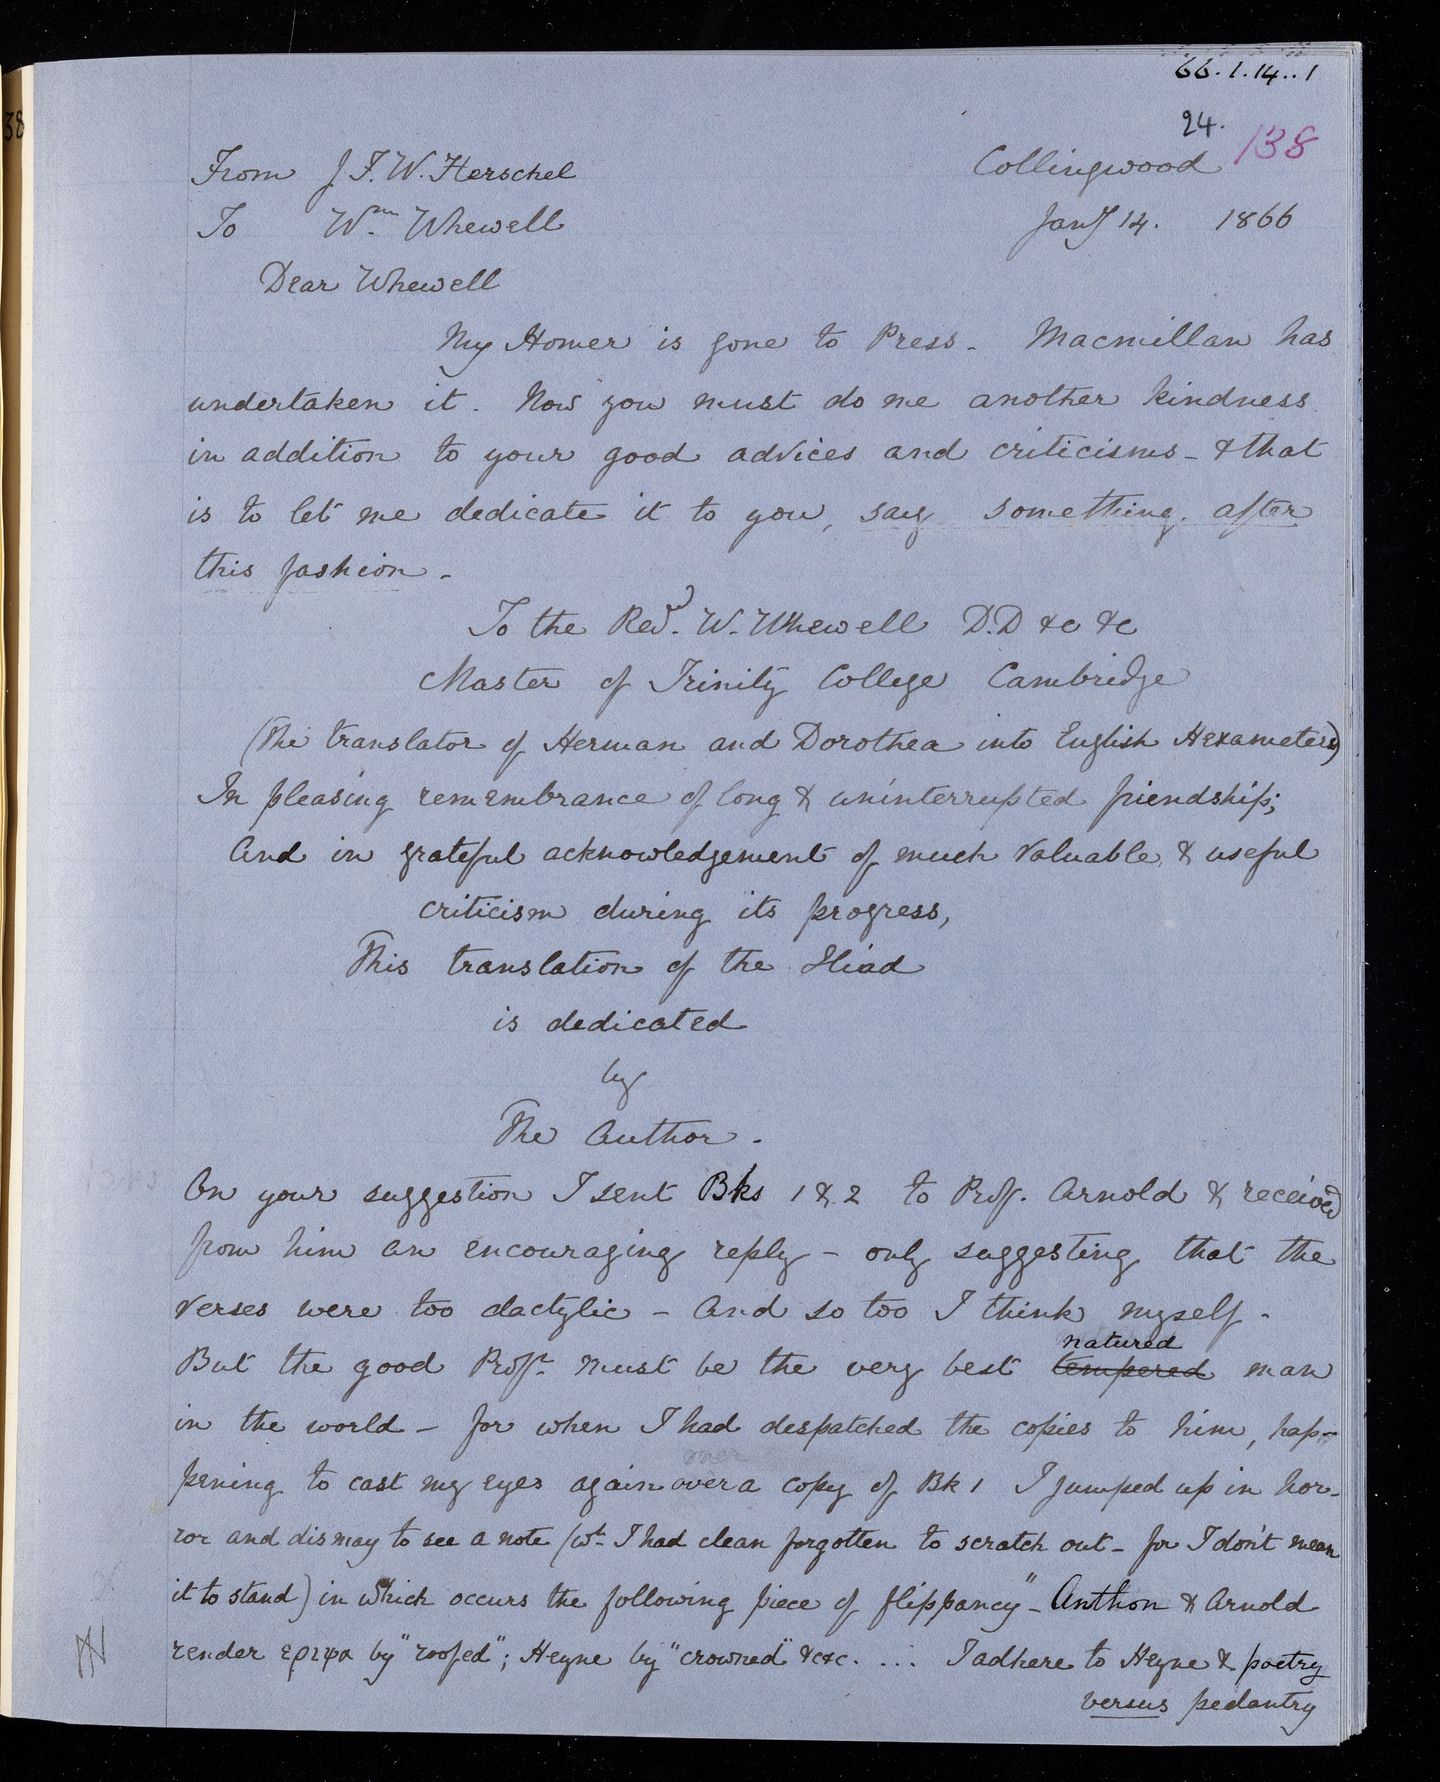 66.1.14..1
24.
138
From J.F.W. Herschel Collingwood
To Wm. Whewell Jany 14. 1866
Dear Whewell
My Homer is gone to Press - Macmillan has
undertaken it. Now you must do me another kindness
in addition to your good advices and criticisms - & that
is to let me dedicate it to you, say something after
this fashion -
To the Revd. W. Whewell D.D &c &c
Master of Trinity College Cambridge
(The translator of Herman and Dorothea into English Hexameters)
In pleasing remembrance of long & uninterrupted friendship;
And in grateful acknowledgement of much valuable & useful
criticism during its progress,
This translation of the Iliad
is dedicated
by
The Author.
On your suggestion I sent Bks 1 & 2 to Prof. Arnold & received
from him an encouraging reply - only suggesting that the
verses were too dactylic - And so too I think myself -
But the good Profr. must be the very best tempered natured man
in the world - for when I had despatched the copies to him, hap-
pening to cast my eyes again over a copy of Bk 1 I jumped up in hor-
ror and dismay to see a note (wh. I had clean forgotten to scratch out - for I don't mean
it to stand) in which occurs the following piece of flippancy "- Anthon & Arnold
render ερεψα by "roofed"; Heyne by "crowned" &c&c. ... I adhere to Heyne & poetry
versus pedantry